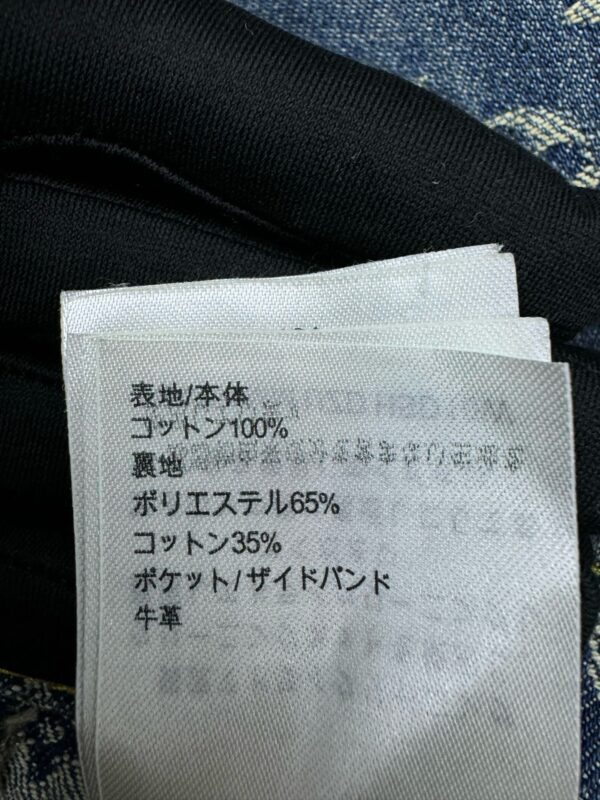 表地/本体
コットン100%
裏地
ポリエステル65%
コットン35%
ポケット/ザイドバンド
牛革